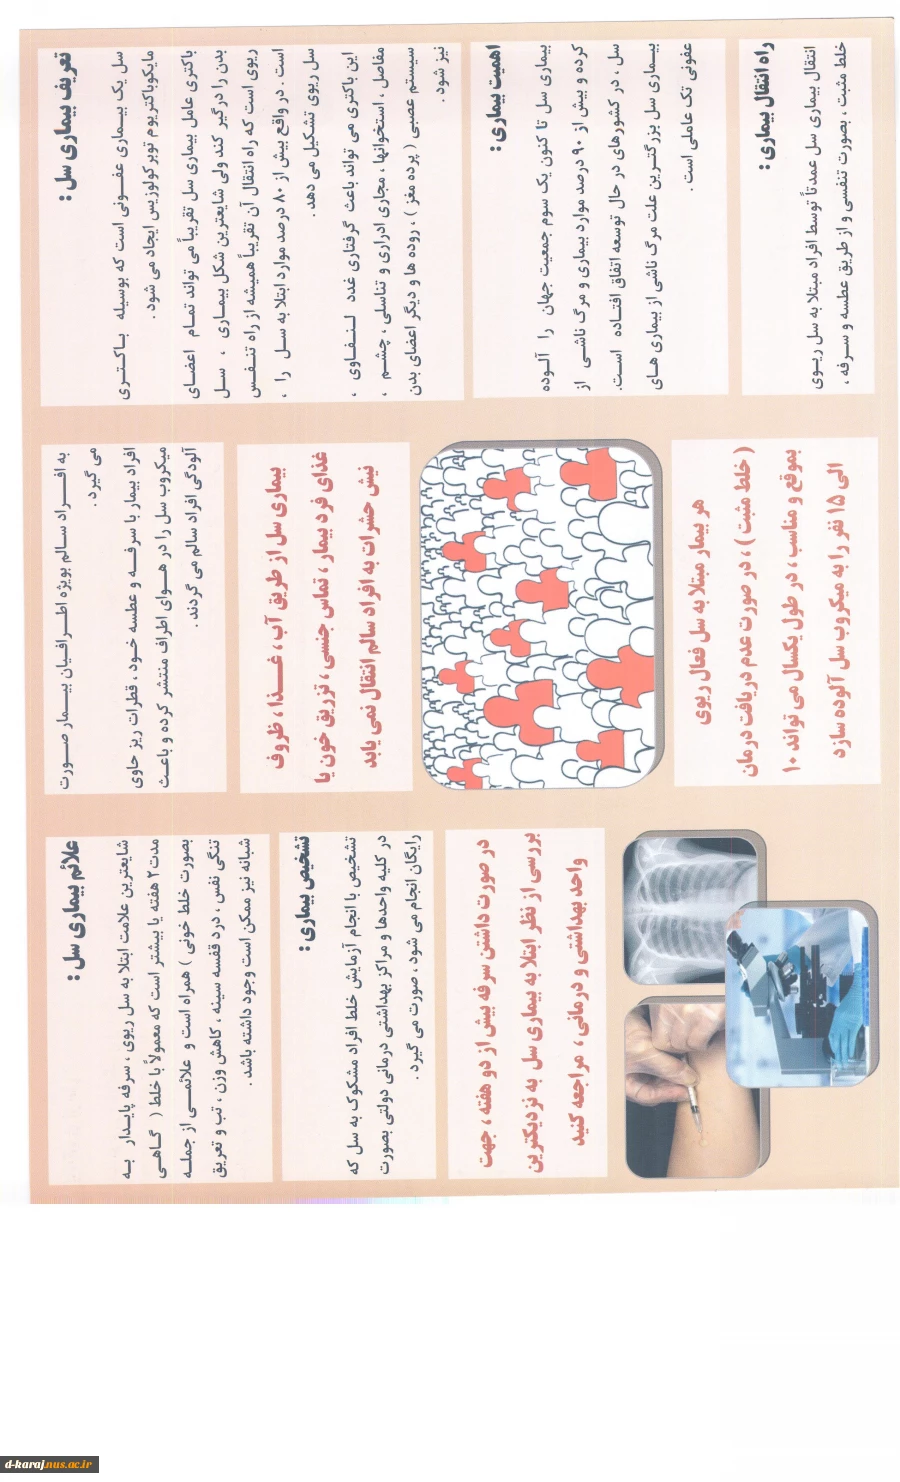 تعریف بیماری سل :
سل یک بیماری عفونی است که بوسیله باکتری
مایکوباکتریوم توبرکولوزیس ایجاد می شود .
باکتری عامل بیماری سل تقریباً می تواند تمام اعضای
بدن را درگیر کند ولی شایعترین شکل بیماری ، سل
ریوی است که راه انتقال آن تقریباً همیشه از راه تنفس
است . در واقع بیش از ۸۰ درصد موارد ابتلا به سل را ،
سل ریوی تشکیل می دهد .
این باکتری می تواند باعث گرفتاری غدد لنفاوی ،
مفاصل ، استخوانها ، مجاری ادراری و تناسلی ، چشم ،
سیستم عصبی ( پرده مغز ) ، روده ها و دیگر اعضای بدن
نیز شود .
اهمیت بیماری :
بیماری سل تا کنون یک سوم جمعیت جهان را آلوده
کرده و بیش از ۹۰ درصد موارد بیماری و مرگ ناشی از
سل ، در کشورهای در حال توسعه اتفاق افتاده است.
بیماری سل بزرگترین علت مرگ ناشی از بیماری های
عفونی تک عاملی است .
راه انتقال بیماری :
انتقال بیماری سل عمدتاً توسط افراد مبتلا به سل ریوی
خلط مثبت ، بصورت تنفسی و از طریق عطسه و سرفه ،
به افراد سالم بویژه اطرافیان بیمار صورت
می گیرد .
افراد بیمار با سرفه و عطسه خود ، قطرات ریز حاوی
میکروب سل را در هوای اطراف منتشر کرده و باعث
آلودگی افراد سالم می گردند .
بیماری سل از طریق آب ، غذا ، ظروف
غذای فرد بیمار ، تماس جنسی ، تزریق خون یا
نیش حشرات به افراد سالم انتقال نمی یابد
هر بیمار مبتلا به سل فعال ریوی
( خلط مثبت ) ، در صورت عدم دریافت درمان
بموقع و مناسب ، در طول یکسال می تواند ۱۰
الی ۱۵ نفر را به میکروب سل آلوده سازد
علائم بیماری سل :
شایعترین علامت ابتلا به سل ریوی ، سرفه پایدار به
مدت ۲ هفته یا بیشتر است که معمولاً با خلط ( گاهی
بصورت خلط خونی ) همراه است و علائمی از جمله
تنگی نفس ، درد قفسه سینه ، کاهش وزن ، تب و تعریق
شبانه نیز ممکن است وجود داشته باشد .
تشخیص بیماری :
تشخیص با انجام آزمایش خلط افراد مشکوک به سل که
در کلیه واحدها و مراکز بهداشتی درمانی دولتی بصورت
رایگان انجام می شود ، صورت می گیرد .
در صورت داشتن سرفه بیش از دو هفته ، جهت
بررسی از نظر ابتلا به بیماری سل به نزدیکترین
واحد بهداشتی و درمانی ، مراجعه کنید
d-karaj.nus.ac.ir